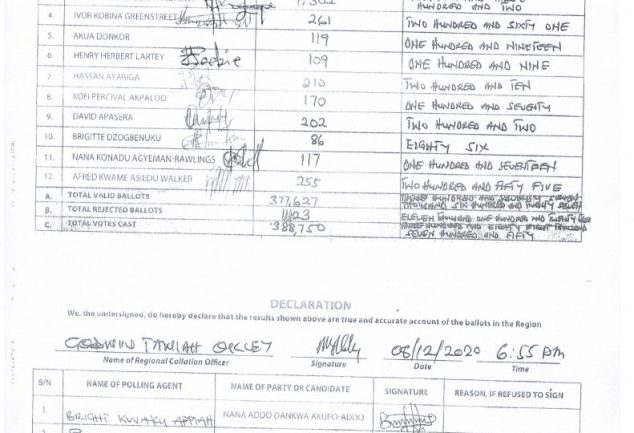 HUNDRED AND TWO
4. IVOR KOBINA GREENSTREET 261 TWO HUNDRED AND SIXTY ONE
5. AKUA DONKOR 119 ONE HUNDRED AND NINETEEN
6. HENRY HERBERT LARTEY 109 ONE HUNDRED AND NINE
7. HASSAN AYARIGA 210 TWO HUNDRED AND TEN
8. KOFI PERCIVAL AKPALOO 170 ONE HUNDRED AND SEVENTY
9. DAVID APASERA 202 TWO HUNDRED AND TWO
10. BRIGITTE DZOGBENUKU 86 EIGHTY SIX
11. NANA KONADU AGYEMAN-RAWLINGS 117 ONE HUNDRED AND SEVENTEEN
12. AFRED KWAME ASIEDU WALKER 255 TWO HUNDRED AND FIFTY FIVE
A. TOTAL VALID BALLOTS 377,627 THREE HUNDRED AND SEVENTY SEVEN
THOUSAND SIX HUNDRED AND TWENTY SEVEN
B. TOTAL REJECTED BALLOTS 11,123 ELEVEN THOUSAND ONE HUNDRED AND TWENTY
C. TOTAL VOTES CAST 388,750 THREE HUNDRED AND EIGHTY EIGHT THOUSAND
SEVEN HUNDRED AND FIFTY
DECLARATION
We, the undersigned, do hereby declare that the results shown above are true and accurate account of the ballots in the Region
GODWIN OKLEY 08/12/2020 6:55 AM
Name of Regional Collation Officer Signature Date Time
S/N NAME OF POLLING AGENT NAME OF PARTY OR CANDIDATE SIGNATURE REASON, IF REFUSED TO SIGN
1. BRIGHT KWAKU APPIAH NANA ADDO DANKWA AKUFO-ADDO
2.